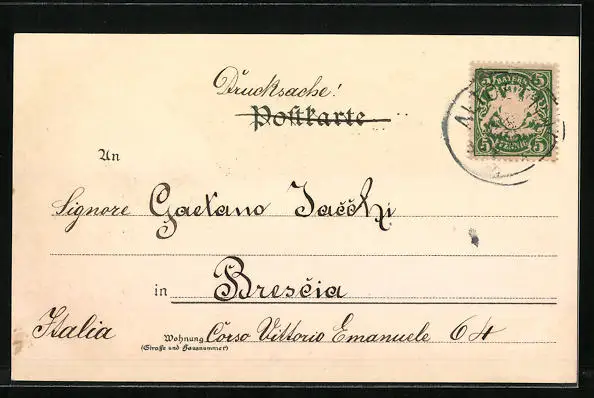 Drucksache!
Postkarte
BAYERN
5 5
5 5
PFENNIG
An
Signore Gaetano
in Brescia
Italia
Wohnung Corso Vittorio Emanuele 64
(Straße und Hausnummer)